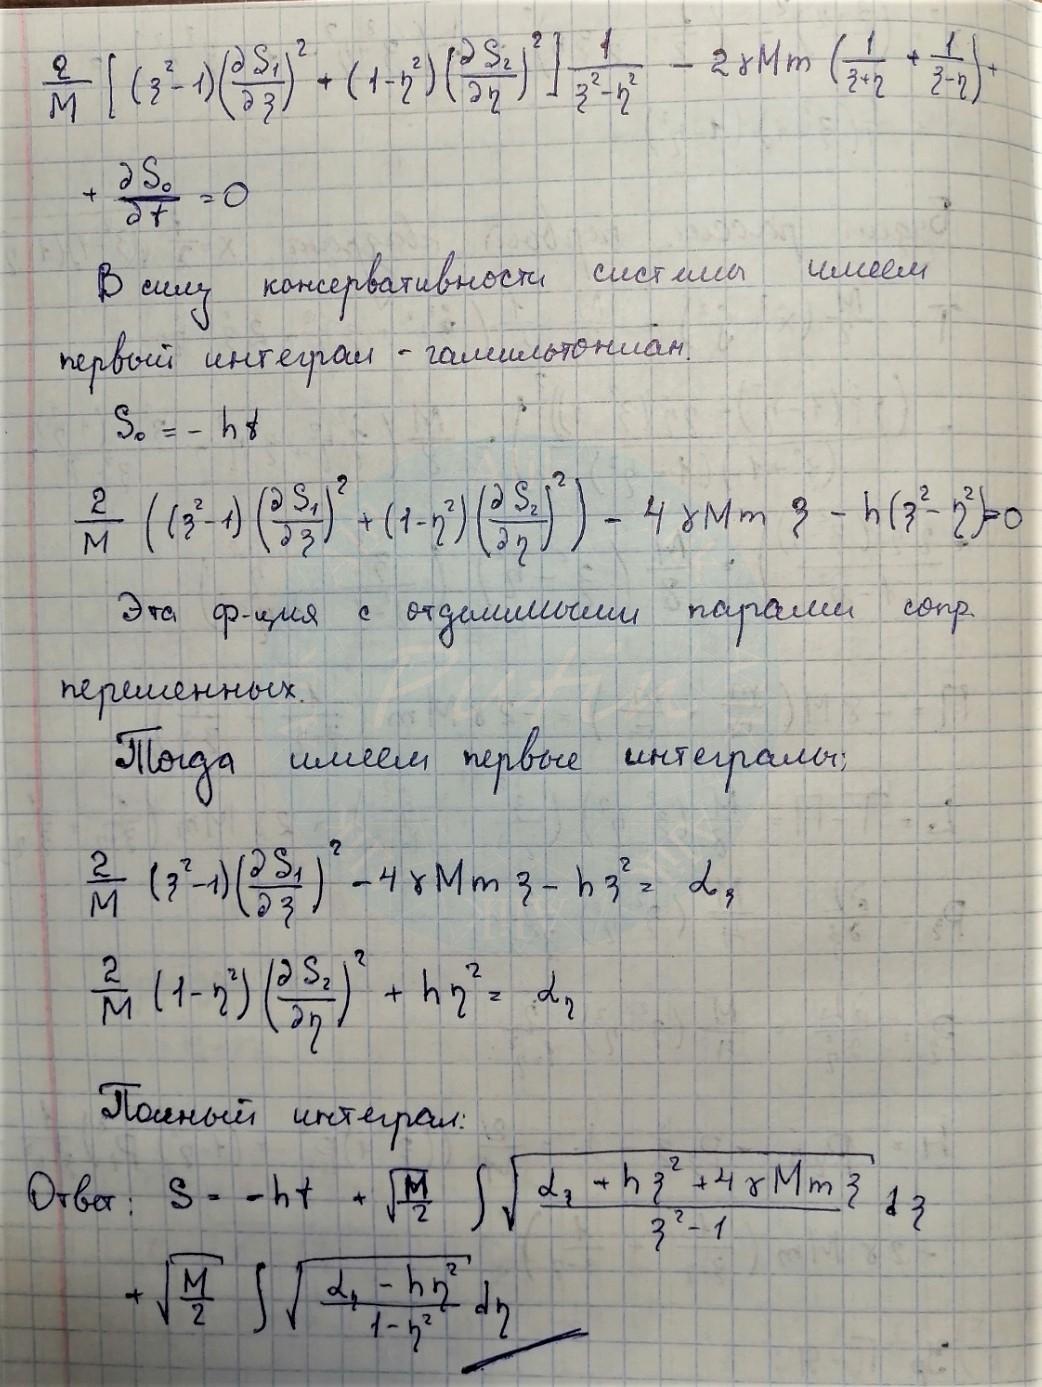 2/M [(ξ²-1)(∂S₁/∂ξ)² + (1-η²)(∂S₂/∂η)²] 1/(ξ²-η²) - 2γMm (1/(ξ+η) + 1/(ξ-η)) +
+ ∂S₀/∂t = 0
В силу консервативности системы имеем
первый интеграл - гамильтониан.
S₀ = - ht
2/M ((ξ²-1)(∂S₁/∂ξ)² + (1-η²)(∂S₂/∂η)²) - 4γMm ξ - h(ξ²-η²)=0
Эта ф-ция с отделимыми парами сопр.
переменных.
Тогда имеем первые интегралы:
2/M (ξ²-1)(∂S₁/∂ξ)² - 4γMm ξ - hξ² = α_ξ
2/M (1-η²)(∂S₂/∂η)² + hη² = α_η
Полный интеграл:
Ответ: S = -ht + √(M/2) ∫ √((α_ξ + hξ² + 4γMm ξ)/(ξ²-1)) dξ
+ √(M/2) ∫ √((α_η - hη²)/(1-η²)) dη